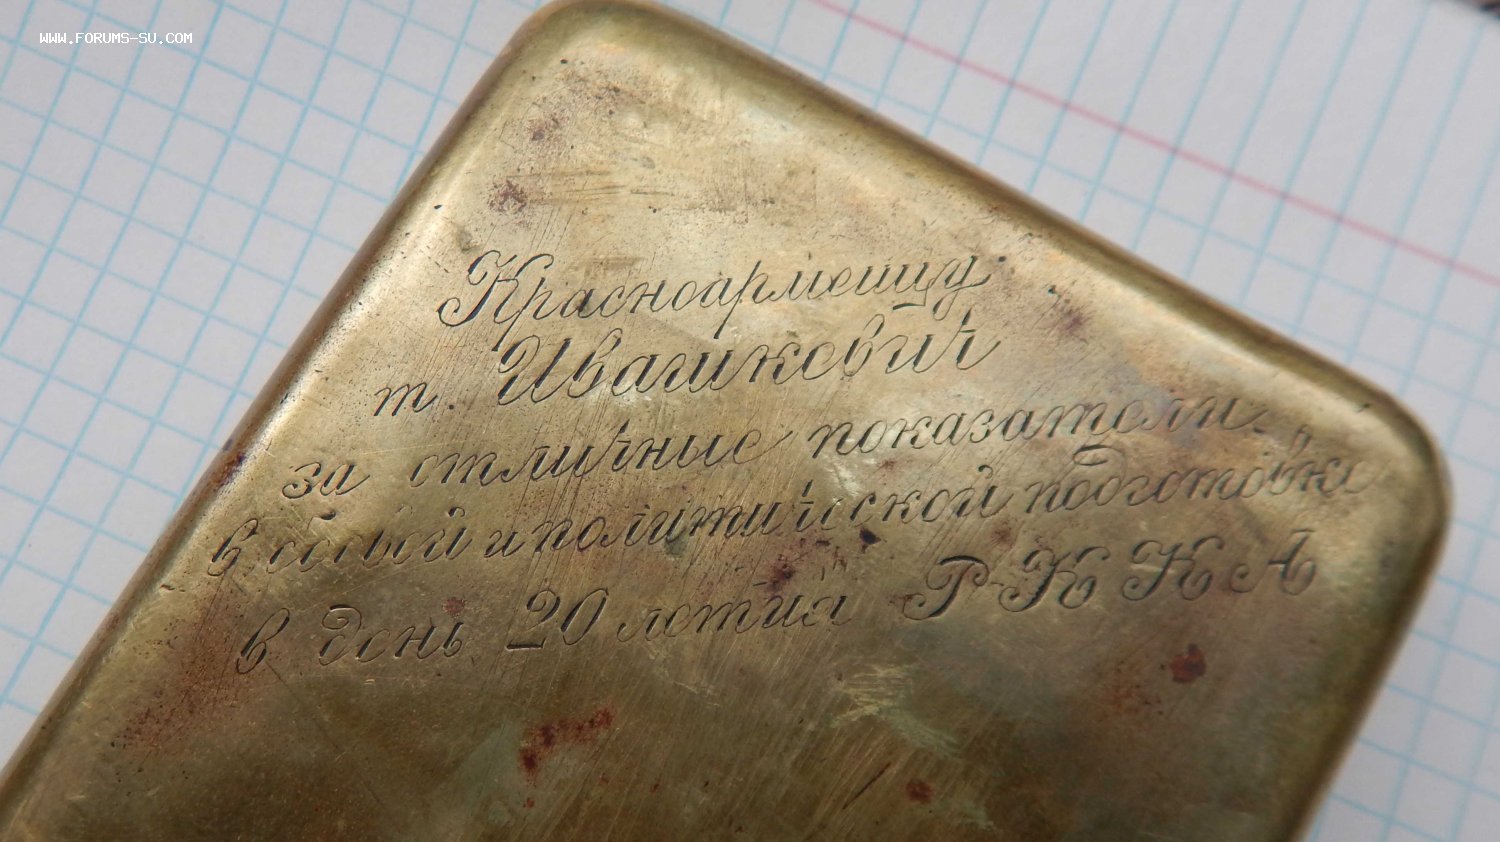 WWW.FORUMS-SU.COM
Красноармейцу
т. Ивашкевич
за отличные показатели
в боевой и политической подготовке
в день 20 летия РККА